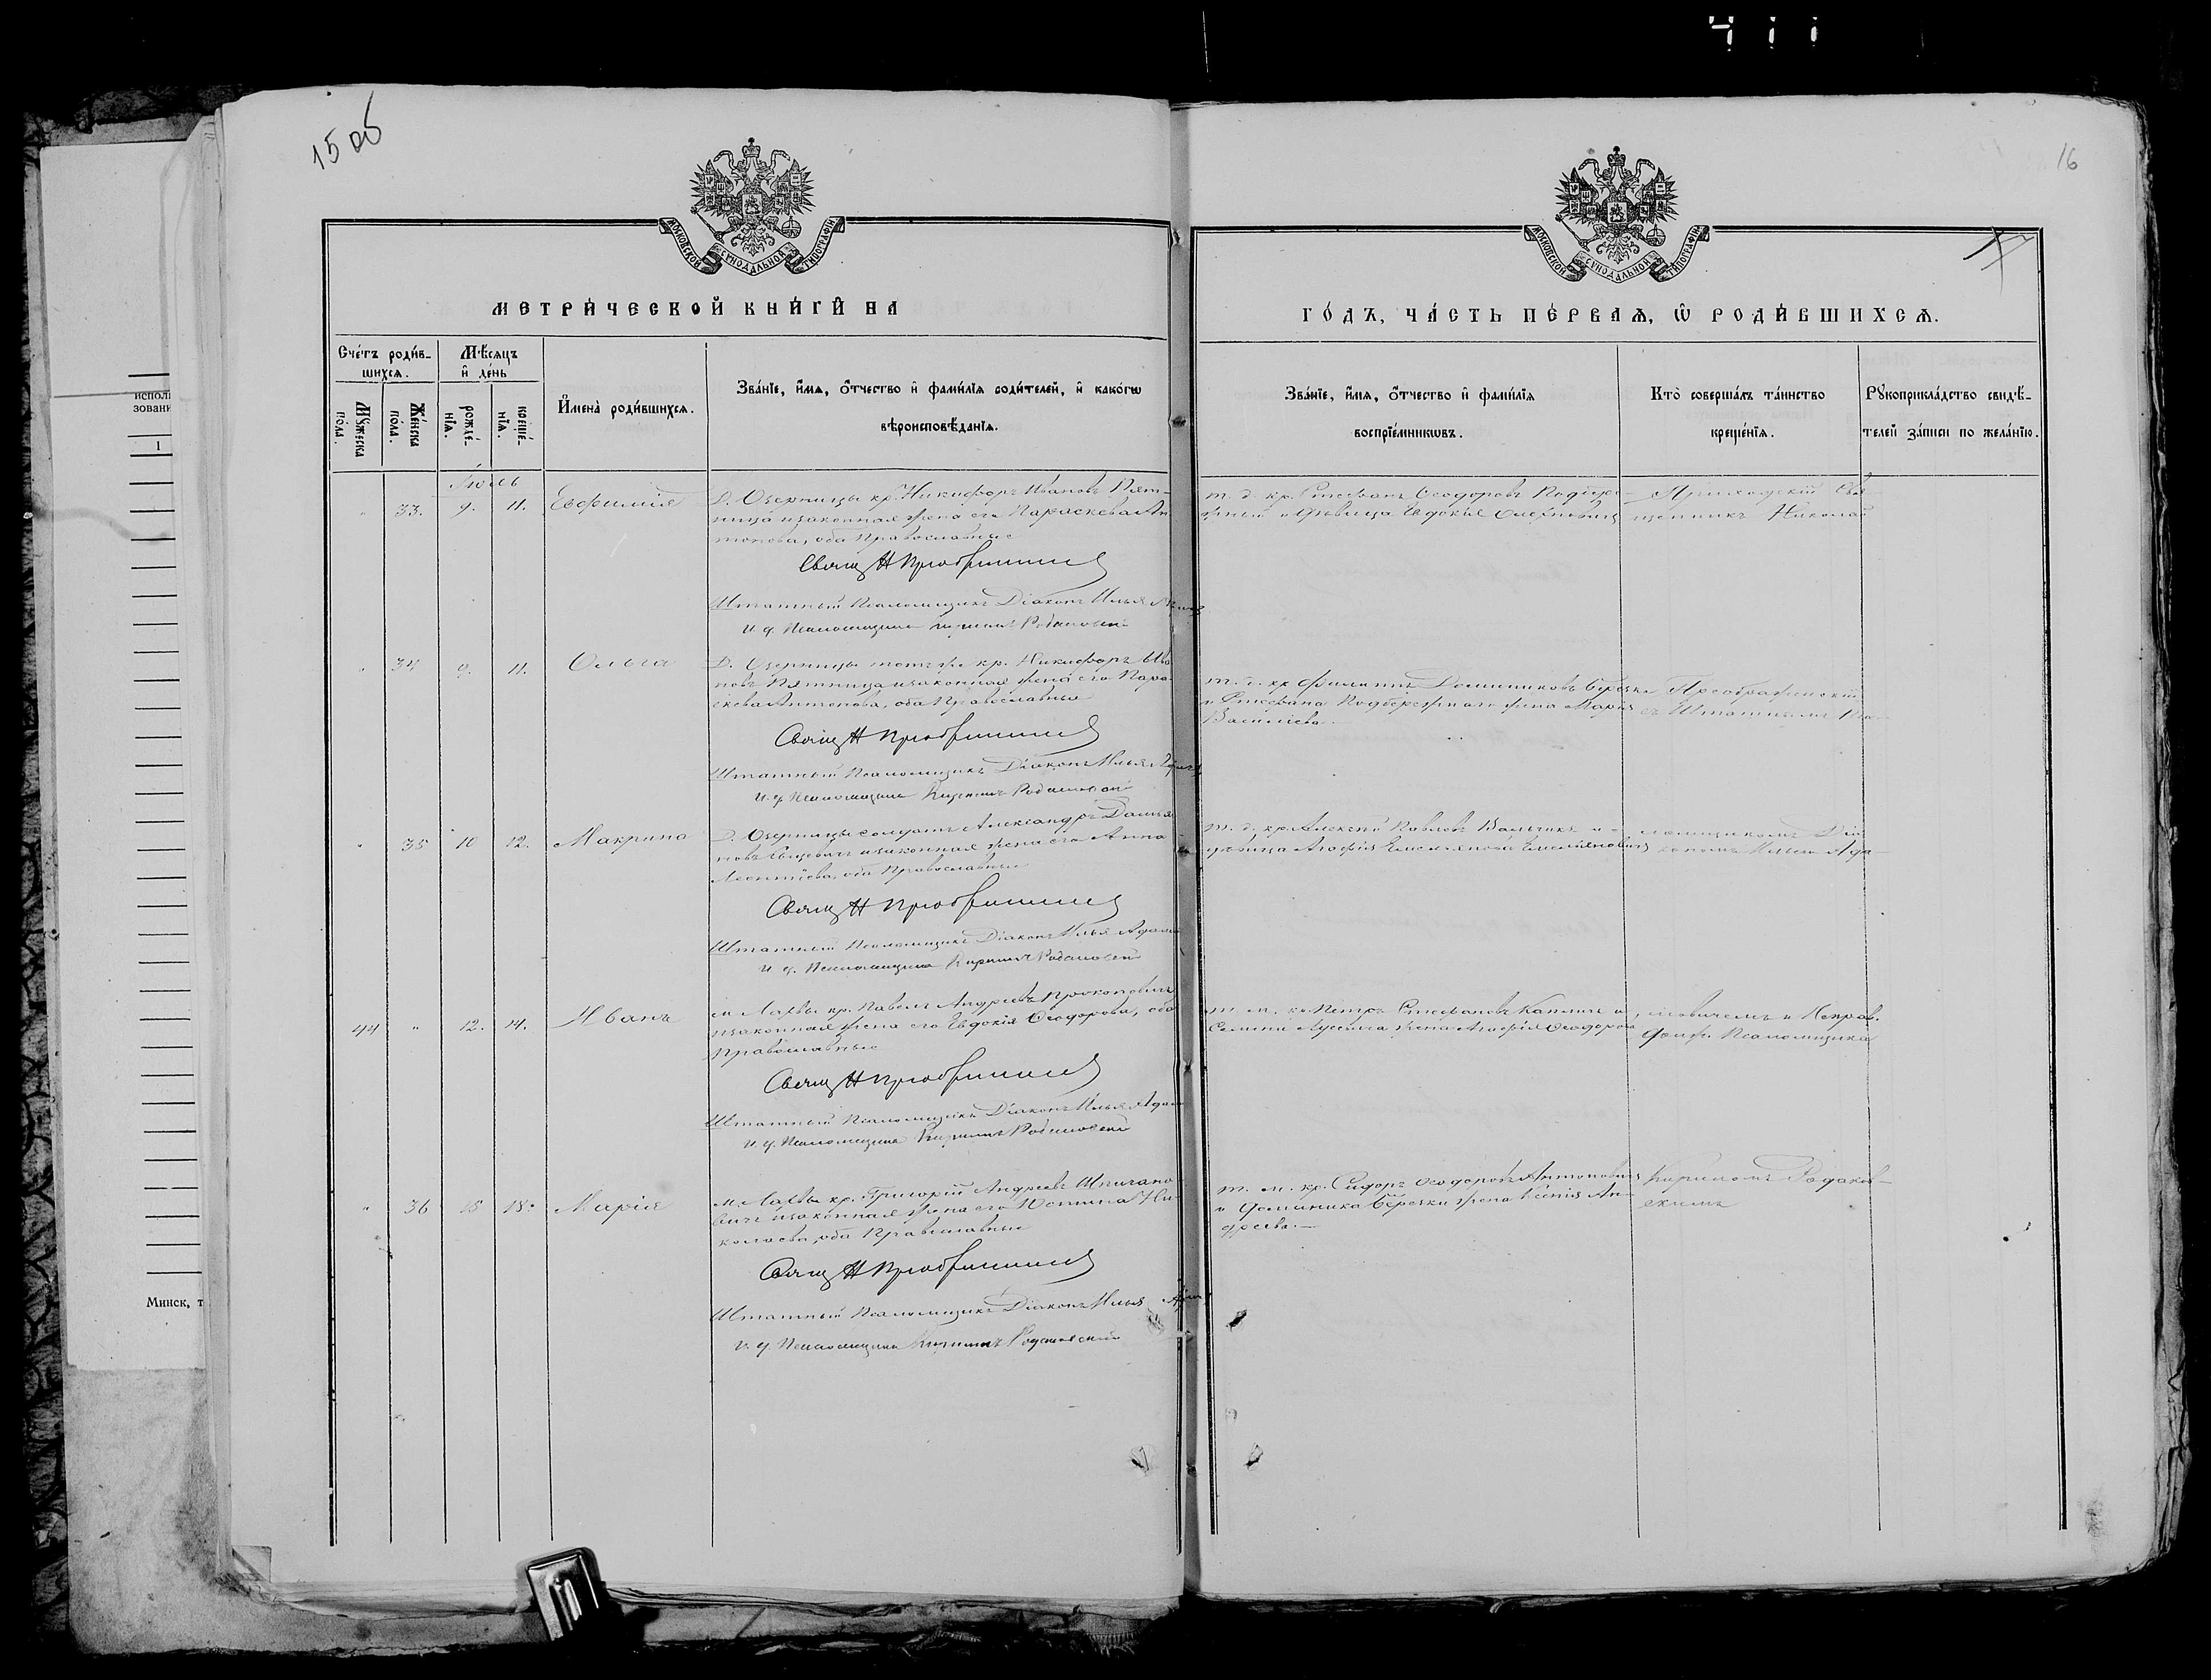 411
15 об
16
17
МОСКОВСКОЙ СѴНОДАЛЬНОЙ ТИПОГРАФІИ
МОСКОВСКОЙ СѴНОДАЛЬНОЙ ТИПОГРАФІИ
МЕТРИЧЕСКОЙ КНИГИ НА
ГОДЪ, ЧАСТЬ ПЕРВАЯ, Ѡ РОДИВШИХСЯ.
Счетъ родив-
шихся.
Мужеска
пола.
Женска
пола.
Мѣсяцъ
и день
рожде-
нія.
креще-
нія.
Имена родившихся.
Званіе, имя, отчество и фамилія родителей, и какогѡ
вѣроисповѣданія.
Званіе, имя, отчество и фамилія
воспріемникѡвъ.
Кто совершалъ таинство
крещенія.
Рукоприкладство свидѣ-
телей записи по желанію.
Іюль
" 33. 9. 11. Евфимія
Д. Озерницы кр. Никифоръ Ивановъ Пят-
ница и законная жена его Параскева Ан
тонова, оба Православные
Свящ Н Преображенскій
Штатный Псаломщикъ Діаконъ Илья
И. д. Псаломщика Кириллъ Родаковскій
т. д. кр. Стефанъ Ѳеодоровъ Подбере-
жный и дѣвица Евдокія
Приходскій Свя-
щенникъ Николай
" 34 9. 11. Ольга
Д. Озерницы тотъ же кр. Никифоръ Ива
новъ Пятница и законная жена его Пара
скева Антонова, оба Православные
Свящ Н Преображенскій
Штатный Псаломщикъ Діаконъ Илья
И. д. Псаломщика Кириллъ Родаковскій
т. д. кр. Филиппъ Доминиковъ Березка
и Стефана Подбережнаго жена Марія
Василіева.—
Преображенскій
съ Штатнымъ Пса-
" 35 10 12. Макрина
Д. Озерницы солдатъ Александръ Даміа
новъ и законная жена его Анна
Леонтіева, оба Православные
Свящ Н Преображенскій
Штатный Псаломщикъ Діаконъ Илья Адам
И. д. Псаломщика Кириллъ Родаковскій
т. д. кр. Алексѣй Павловъ Вальчикъ и -
дѣвица Агафія Емеліянова Емеліяновичъ
ломщикомъ Діа-
кономъ Ильею Ада-
44 " 12. 14. Иванъ
м. Лахвы кр. Павелъ Андреевъ Прокоповичъ
и законная жена его Евдокія Ѳеодорова, оба
Православные
Свящ Н Преображенскій
Штатный Псаломщикъ Діаконъ Илья Адам
И. д. Псаломщика Кириллъ Родаковскій
т. м. кр. Петръ Стефановъ и
жена Агафія Ѳеодорова
мовичемъ и Исправ.
долж. Псаломщика
" 36 15 18. Марія
м. Лахвы кр. Григорій Андреевъ Шпигано
вичъ и законная жена его Юстина Ни-
колаева, оба Православные
Свящ Н Преображенскій
Штатный Псаломщикъ Діаконъ Илья
И. д. Псаломщика Кириллъ Родаковскій
т. м. кр. Сидоръ Ѳеодоровъ Антоновичъ
и Доминика Березки жена Ксенія Ан-
дреева.—
Кириломъ Родаков-
скимъ
исполь
зовани
1
Минск, т